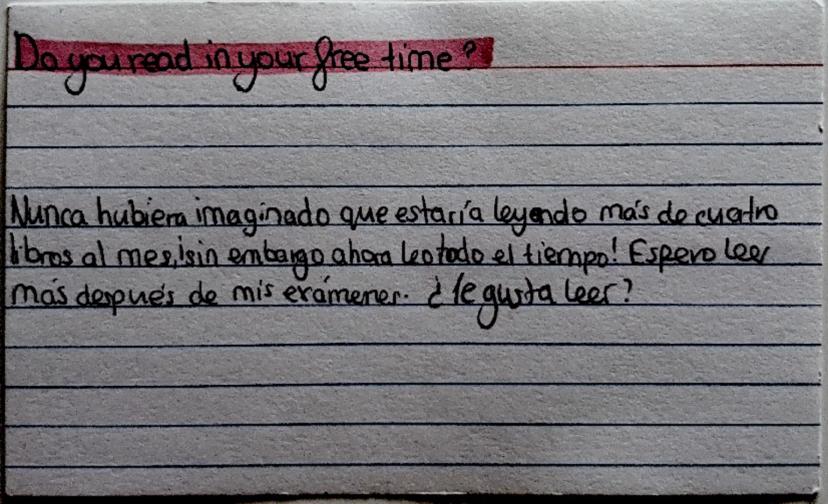 Do you read in your free time?
Nunca hubiera imaginado que estaría leyendo más de cuatro
libros al mes, ¡sin embargo ahora leo todo el tiempo! Espero leer
más después de mis exámenes. ¿le gusta leer?